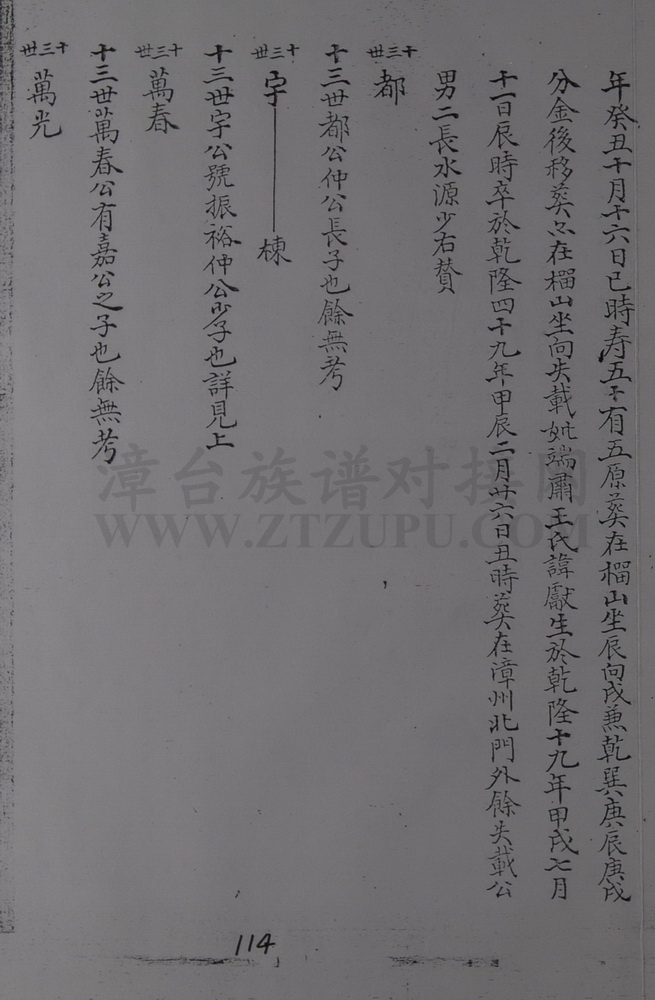 年癸丑十月十六日巳時寿五十有五原葬在榴山坐辰向戌兼乾巽庚辰庚戌
分金後移葬亦在榴山坐向失載妣端肅王氏諱獻生於乾隆十九年甲戌七月
十一日辰時卒於乾隆四十九年甲辰二月廿六日丑時葬在漳州北門外餘失載公
男二長水源少右贊
十三世
都
十三世都公仲公長子也餘無考
十三世
宇 棟
十三世宇公號振裕仲公少子也詳見上
十三世
萬春
十三世萬春公有嘉公之子也餘無考
十三世
萬光
漳台族谱对接网
WWW.ZTZUPU.COM
114